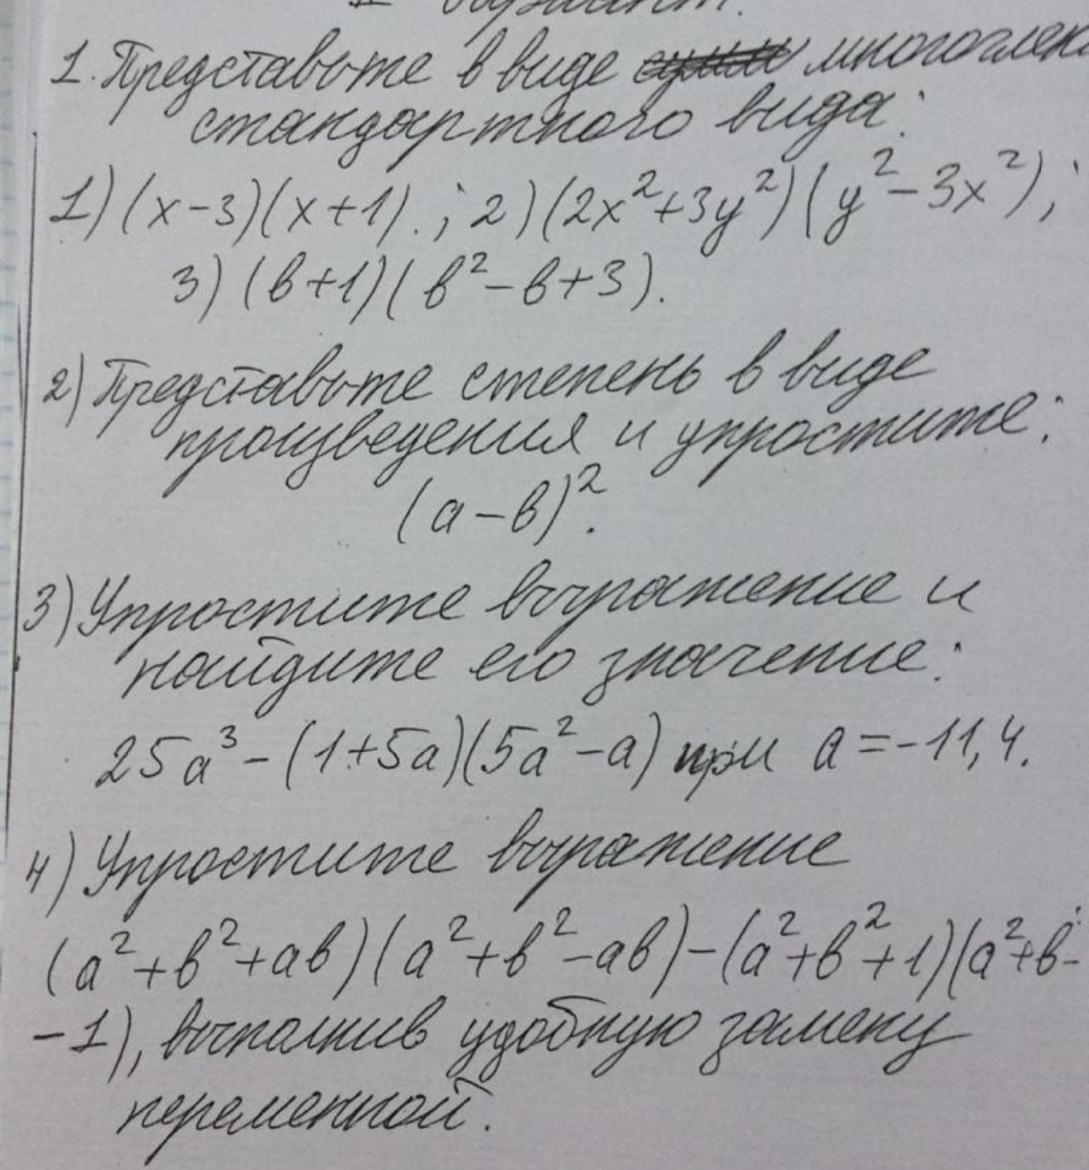 II вариант.
1. Представьте в виде многочлен
стандартного вида:
1) (x-3)(x+1).; 2) (2x²+3y²)(y²-3x²);
3) (в+1)(в²-в+3).
2) Представьте степень в виде
произведения и упростите:
(a-в)².
3) Упростите выражение и
найдите его значение:
25a³-(1+5a)(5a²-a) при a=-11,4.
4) Упростите выражение
(a²+в²+aв)(a²+в²-aв)-(a²+в²+1)(a²+в²-
-1), выполнив удобную замену
переменной.